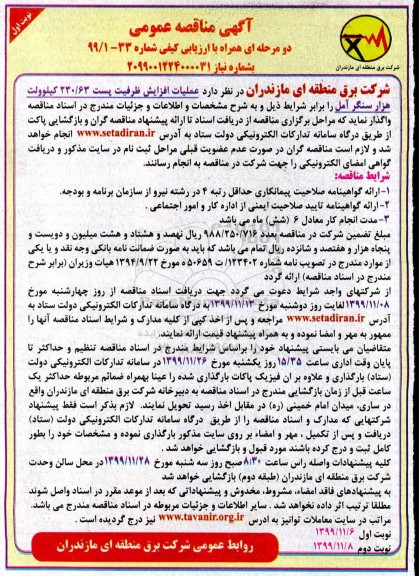 نوبت اول
آگهی مناقصه عمومی
دو مرحله ای همراه با ارزیابی کیفی شماره ۳۳-۹۹/۱
بشماره نیاز ۲۰۹۹۰۰۱۲۲۴۰۰۰۰۳۱
شرکت برق منطقه ای مازندران
شرکت برق منطقه ای مازندران در نظر دارد عملیات افزایش ظرفیت پست ۲۳۰/۶۳ کیلوولت
هزار سنگر آمل را برابر شرایط ذیل و به شرح مشخصات و اطلاعات و جزئیات مندرج در اسناد مناقصه
واگذار نماید که مراحل برگزاری مناقصه از دریافت اسناد تا ارائه پیشنهاد مناقصه گران و بازگشایی پاکت
از طریق درگاه سامانه تدارکات الکترونیکی دولت ستاد به آدرس www.setadiran.ir انجام خواهد
شد و لازم است مناقصه گران در صورت عدم عضویت قبلی مراحل ثبت نام در سایت مذکور و دریافت
گواهی امضای الکترونیکی را جهت شرکت در مناقصه به انجام رسانند.
شرایط مناقصه:
۱-ارائه گواهینامه صلاحیت پیمانکاری حداقل رتبه ۴ در رشته نیرو از سازمان برنامه و بودجه.
۲-ارائه گواهینامه تایید صلاحیت ایمنی از اداره کار و امور اجتماعی .
۳-مدت انجام کار معادل ۶ (شش) ماه می باشد
مبلغ تضمین شرکت در مناقصه بعدد ۹۸۸/۲۵۰/۷۱۶ ریال نهصد و هشتاد و هشت میلیون و دویست و
پنجاه هزار و هفتصد و شانزده ریال تمام می باشد که باید به صورت ضمانت نامه بانکی وجه نقد و یا یکی
از موارد مندرج در تصویب نامه شماره ۱۲۳۴۰۲/ت ۵۰۶۵۹ ه مورخ ۱۳۹۴/۹/۲۲ هیات وزیران (برابر شرح
مندرج در اسناد مناقصه) ارائه گردد
از شرکتهای واجد شرایط دعوت می گردد جهت دریافت اسناد مناقصه از روز چهارشنبه مورخ
۱۳۹۹/۱۱/۰۸ لغایت روز دوشنبه مورخ ۱۳۹۹/۱۱/۱۳ به درگاه سامانه تدارکات الکترونیکی دولت ستاد به
آدرس www.setadiran.ir مراجعه و پس از اخذ کپی از کلیه مدارک و شرایط اسناد مناقصه آنها را
ممهور به مهر و امضا نموده و به همراه پیشنهاد قیمت ارائه نمایند.
متقاضیان می بایستی پیشنهاد خود را براساس شرایط مندرج در اسناد مناقصه تنظیم و حداکثر تا
پایان وقت اداری ساعت ۱۵/۳۵ روز یکشنبه مورخ ۱۳۹۹/۱۱/۲۶ در سامانه تدارکات الکترونیکی دولت
(ستاد) بارگذاری و علاوه بر ان فیزیک پاکات بارگذاری شده را عینا بهمراه ضمائم مربوطه حداکثر یک
ساعت قبل از زمان بازگشایی مندرج در اسناد مناقصه به دبیرخانه شرکت برق منطقه ای مازندران واقع
در ساری، میدان امام خمینی (ره) در مقابل اخذ رسید تحویل نمایند. لازم بذکر است فقط پیشنهاد
شرکتهایی که مدارک و اسناد مناقصه را از طریق درگاه سامانه تدارکات الکترونیکی دولت (ستاد)
دریافت و پس از تکمیل ، مهر و امضاء بر روی سایت مذکور بارگذاری نموده و مشخصات خود را بطور
کامل ثبت و درج کرده باشند مورد قبول و بازگشایی خواهد شد .
کلیه پیشنهادات واصله راس ساعت ۸/۳۰ صبح روز سه شنبه مورخ ۱۳۹۹/۱۱/۲۸ در محل سالن وحدت
شرکت برق منطقه ای مازندران (طبقه دوم) بازگشایی خواهد شد
به پیشنهادهای فاقد امضاء، مشروط، مخدوش و پیشنهاداتی که بعد از موعد مقرر در اسناد واصل شوند
مطلقا ترتیب اثر داده نخواهد شد . سایر اطلاعات و جزئیات مربوطه در اسناد مناقصه مندرج می باشد.
مراتب در سایت معاملات توانیز به آدرس www.tavanir.org.ir نیز درج گردیده است .
نوبت اول ۱۳۹۹/۱۱/۶
نوبت دوم ۱۳۹۹/۱۱/۸
روابط عمومی شرکت برق منطقه ای مازندران